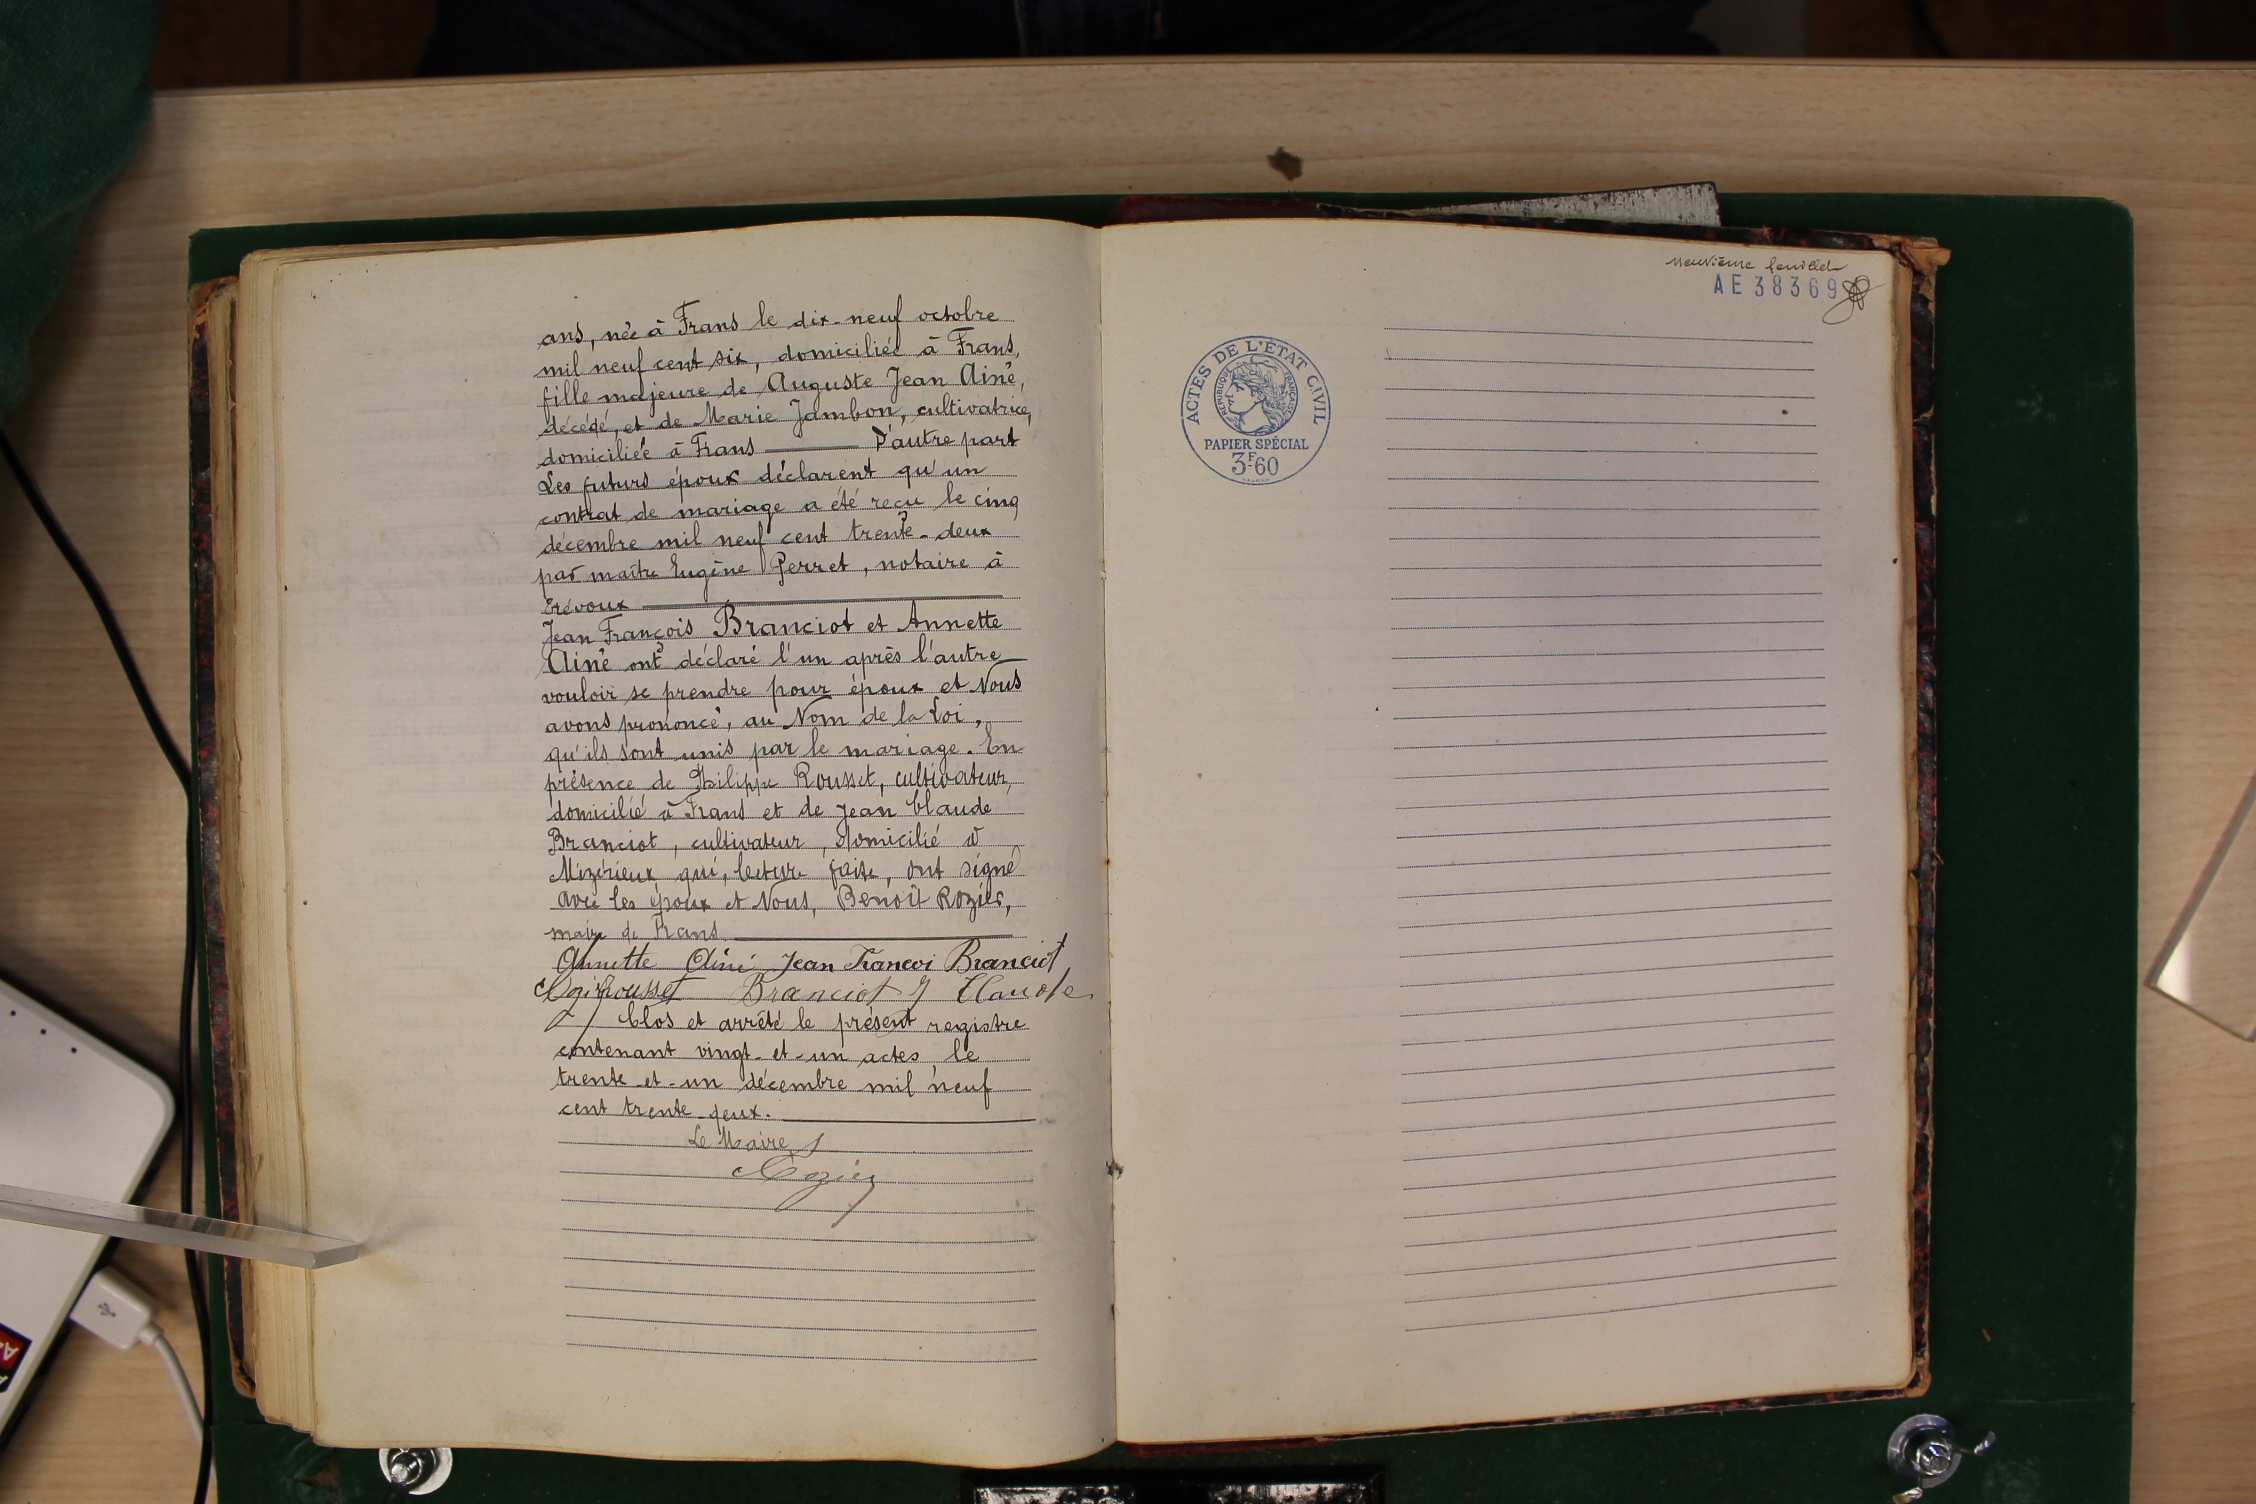 ans, née à Frans le dix-neuf octobre
mil neuf cent six, domiciliée à Frans,
fille majeure de Auguste Jean Ainé,
décédé, et de Marie Jambon, cultivatrice,
domiciliée à Frans D'autre part
Les futurs époux déclarent qu'un
contrat de mariage a été reçu le cinq
décembre mil neuf cent trente-deux
par maître Eugène Perret, notaire à
Trévoux
Jean François Branciot et Annette
Ainé ont déclaré l'un après l'autre
vouloir se prendre pour époux et Nous
avons prononcé, au Nom de la Loi,
qu'ils sont unis par le mariage. En
présence de Philippe Rousset, cultivateur,
domicilié à Frans et de Jean Claude
Branciot, cultivateur, domicilié à
Mizérieux, qui, lecture faite, ont signé
avec les époux et Nous, Benoît Rozier,
maire de Frans
Annette Ainé Jean Francoi Branciot
Rousset Branciot J Claude
Clos et arrêté le présent registre
contenant vingt-et-un actes le
trente-et-un décembre mil neuf
cent trente-deux.
Le Maire
Rozier
neuvième feuillet
AE 38369
ACTES DE L'ÉTAT CIVIL
RÉPUBLIQUE FRANÇAISE
PAPIER SPÉCIAL
3F60